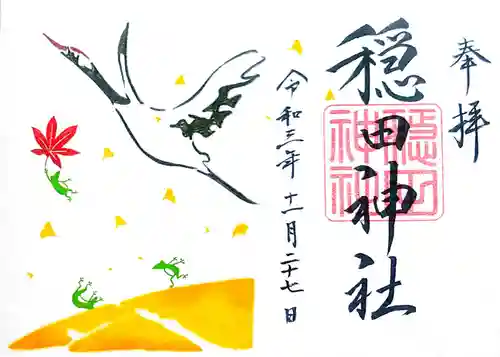 奉拝
穏田神社
穏田
神社
令和三年 十一月二十七日